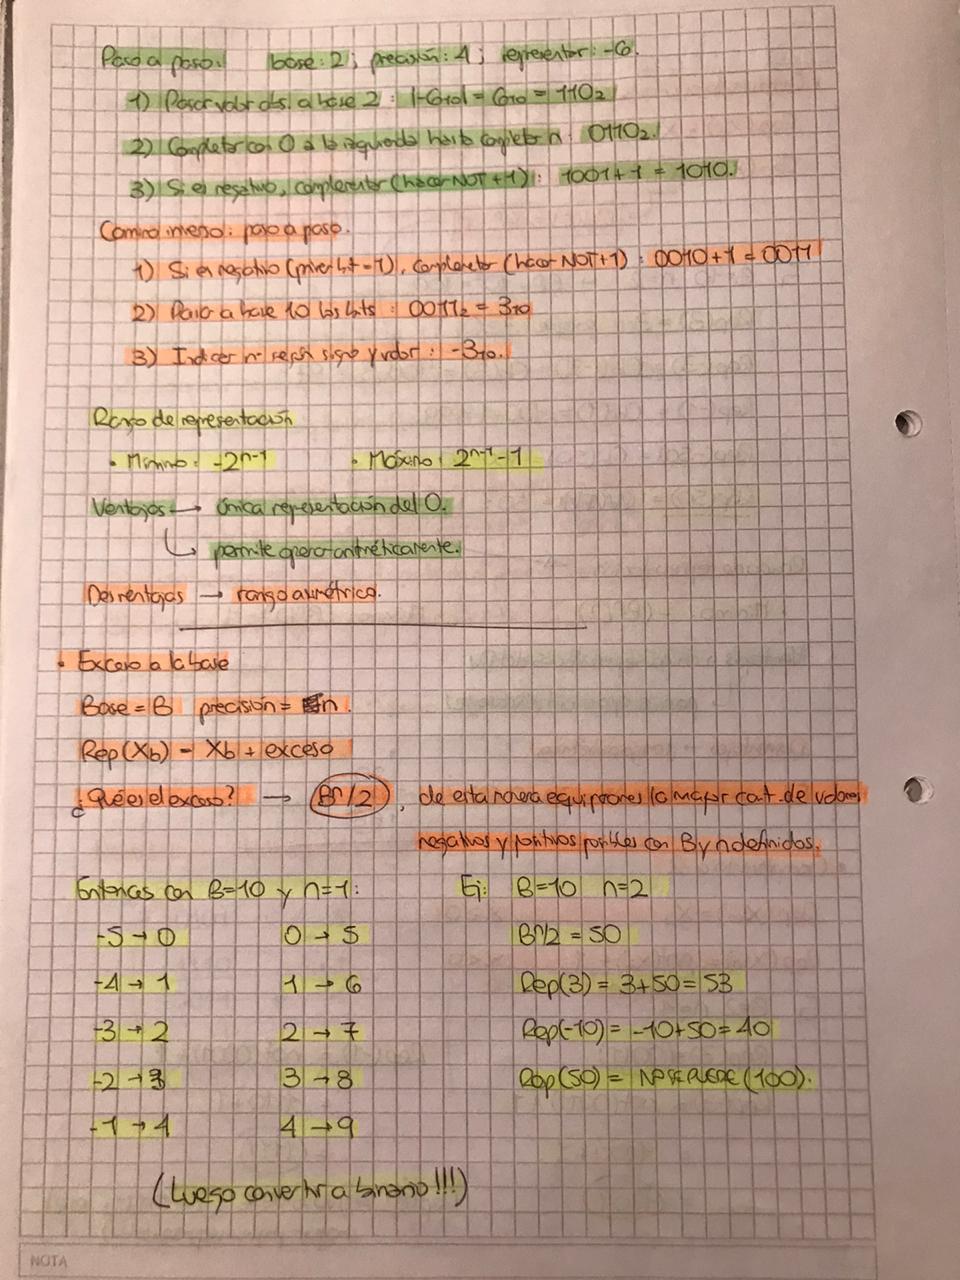 Paso a paso: base: 2; precisión: 4; representar: -6.
1) Pasar valor abs. a base 2: |-6₁₀| = 6₁₀ = 110₂
2) Completar con 0 a la izquierda hasta completar n: 0110₂.
3) Si es negativo, complementar (hacer NOT+1): 1001+1 = 1010.
Camino inverso: paso a paso.
1) Si es negativo (primer bit = 1), complementar (hacer NOT+1): 0010+1 = 0011
2) Paso a base 10 los bits: 0011₂ = 3₁₀
3) Indicar n° según signo y valor: -3₁₀.
Rango de representación
• Mínimo: -2ⁿ⁻¹ • Máximo: 2ⁿ⁻¹-1
Ventajas → única representación del 0.
↳ permite operar aritméticamente.
Desventajas → rango asimétrico.
• Exceso a la base
Base = B precisión = n.
Rep(Xb) = Xb + exceso
¿Qué es el exceso? → Bⁿ/2, de esta manera equiparamos la mayor cant. de valores
negativos y positivos posibles con B y n definidos.
Entonces con B=10 y n=1: Ej: B=10 n=2
-5 → 0 0 → 5 Bⁿ/2 = 50
-4 → 1 1 → 6 Rep(3) = 3+50 = 53
-3 → 2 2 → 7 Rep(-10) = -10+50 = 40
-2 → 3 3 → 8 Rep(50) = NO SE PUEDE (100).
-1 → 4 4 → 9
(Luego convertir a binario!!!)
NOTA